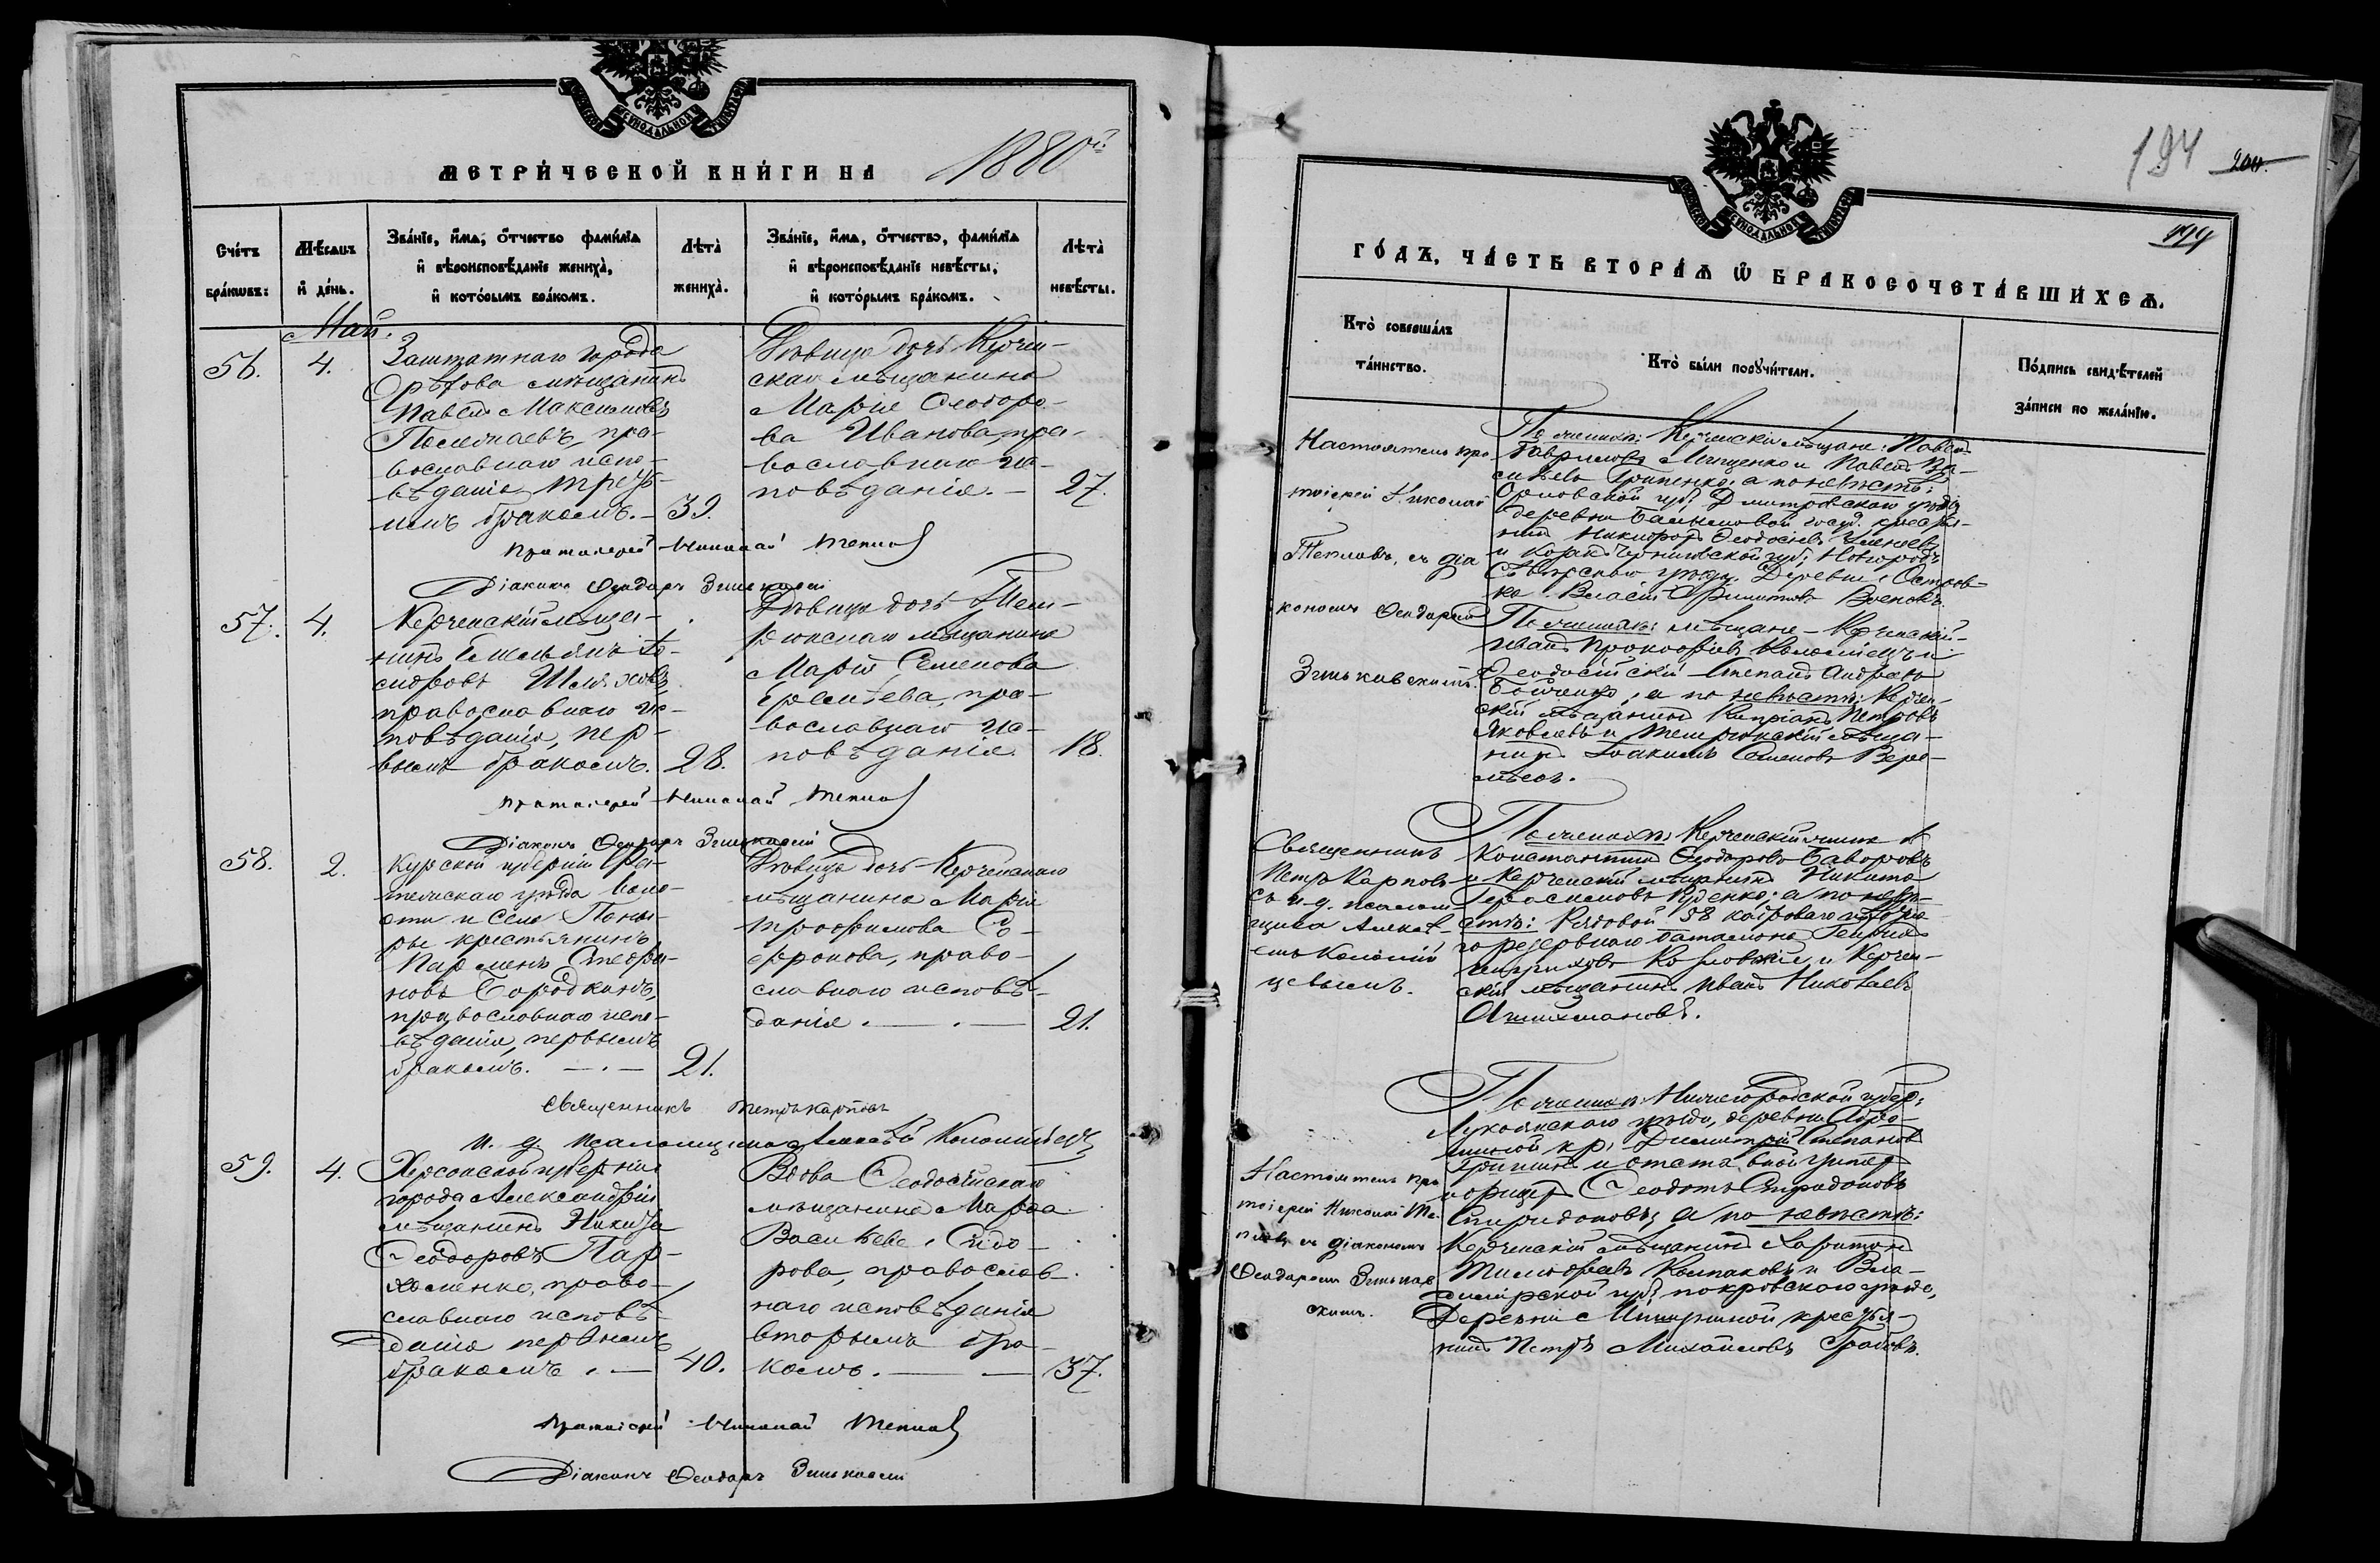 МЕТРИ́ЧЕСКОЙ КНИ́ГИ НА 1880й
Сче́тъ бра́ковъ:
Мѣ́сѧцъ и҆ де́нь.
Зва́нїе, и҆́мѧ, ѻ҆́тчество фами́лїѧ и҆ вѣроисповѣ́данїе жениха̀, и҆ кото́рымъ бра́комъ.
Лѣта̀ жениха̀.
Зва́нїе, и҆́мѧ, ѻ҆́тчество, фами́лїѧ и҆ вѣроисповѣ́данїе невѣ́сты, и҆ кото́рымъ бра́комъ.
Лѣта̀ невѣ́сты.
Май.
56.
4.
Заштатнаго города
Орѣхова мѣщанинъ
Павелъ Максимовъ
православнаго испо-
вѣданія, треть-
имъ бракомъ. –
39.
Дѣвица дочь Керчен-
скаго мѣщанина
Марія Ѳеодоро-
ва Иванова, пра-
вославнаго ис-
повѣданія. –
27.
Протоіерей Николай Теплов
Діаконъ Ѳеодоръ Зеньковскій
57.
4.
Керченскій мѣща-
нинъ
православнаго ис-
повѣданія, пер-
вымъ бракомъ.
28.
Дѣвица дочь Тем-
рюкскаго мѣщанина
Марія Семенова
пра-
вославнаго ис-
повѣданія.
18.
Протоіерей Николай Теплов
Діаконъ Ѳеодоръ Зеньковскій
58.
2.
Курской губерніи Фа-
тежскаго уѣзда воло-
сти и села Поны-
ры крестьянинъ
Парменъ Стефа-
новъ Бородкинъ,
православнаго испо-
вѣданія, первымъ
бракомъ. – . –
21.
Дѣвица дочь Керченскаго
мѣщанина Марія
Трофимова Со-
фронова, право-
славнаго исповѣ-
данія. – . –
21.
Священникъ Петръ Карповъ
и. д. псаломщика Алексѣй Коломійцевъ
59.
4.
Херсонской губерніи
города Александріи
мѣщанинъ Никита
Ѳеодоровъ Пар-
хоменко, право-
славнаго исповѣ-
данія первымъ
бракомъ. –
40.
Вдова Ѳеодосійскаго
мѣщанина Марѳа
Васильева Сидо-
рова, православ-
наго исповѣданія
вторымъ бра-
комъ. –
37.
Протоіерей Николай Теплов
Діаконъ Ѳеодоръ Зеньковскій
194
204.
199
ГО́ДЪ, ЧА́СТЬ ВТОРА́Ѧ Ѡ҆ БРАКОСОЧЕТА́ВШИХСѦ.
Кто̀ соверша́лъ та́инство.
Кто̀ бы́ли порꙋчи́тели.
По́дпись свидѣ́телей за́писи по жела́нїю.
Настоятель про-
тоіерей Николай
Тепловъ, съ діа
кономъ Ѳеодоромъ
Зеньковскимъ.
По женихѣ: Керченскіе мѣщане: Павелъ
Гавриловъ Мищенко и Павелъ Ва-
сильевъ Гриценко, а по невѣстѣ:
Орловской губ. Дмитровскаго уѣзда
деревни госуд. крестья-
нинъ Никифоръ Ѳеодосіевъ
и Черниговской губ. Новгородъ
Сѣверскаго уѣзда, деревни Остров-
По женихѣ: мѣщане – Керченскій
Иванъ Прокофіевъ Коломіецъ и
Ѳеодосійскій Степанъ Андреевъ
Бойченко, а по невѣстѣ: Керчен-
скій мѣщанинъ Кипріанъ Петровъ
Яковлевъ и Темрюкскій мѣща-
нинъ Іоакимъ Семеновъ
Священникъ
Петръ Карповъ
съ и. д. псалом
щика Алексѣ-
емъ Коломій
цевымъ.
По женихѣ: Керченскій
Константинъ Ѳеодоровъ
и Керченскій мѣщанинъ Никита
Герасимовъ а по невѣ-
стѣ: Рядовой 58 кадроваго
резервнаго баталіона
и Керчен-
скій мѣщанинъ Иванъ Николаевъ
Настоятель про
тоіерей Николай Те-
пловъ съ діакономъ
Ѳеодоромъ Зеньков
скимъ.
По женихѣ: Нижегородской губер.
Лукоянскаго уѣзда, деревни
кр. Димитрій Степановъ
и отставной унтеръ
офицеръ Ѳеодотъ Спиридоновъ
Спиридоновъ, а по невѣстѣ:
Керченскій мѣщанинъ Харитонъ
Тимоѳеевъ Колпаковъ и Вла-
димірской губ. Покровскаго уѣзда,
деревни крестья-
нинъ Петръ Михайловъ